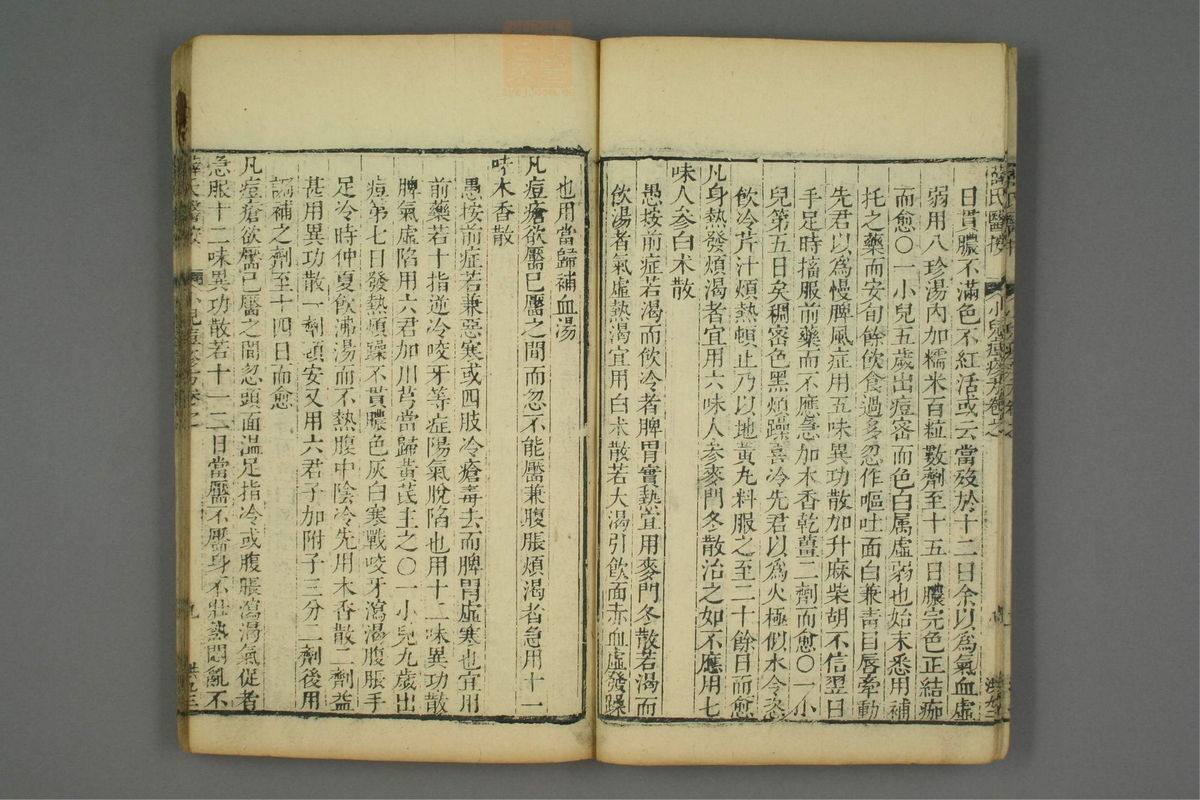 日貫膿不滿色不紅活或云當殁於十二日余以爲氣血虛
弱用八珍湯内加糯米百粒數劑至十五日膿完色正結痂
而愈〇一小兒五歲出痘密而色白属虛弱也始末悉用補
托之藥而安旬餘飲食過多忽作嘔吐面白兼青目唇牽動
先君以爲慢脾風症用五味異功散加升麻柴胡不信翌日
手足時搐服前藥而不應急加木香乾薑二劑而愈〇一小
兒第五日矣稠密色黑煩躁喜冷先君以爲火極似水令恣
飲冷芹汁煩熱頓止乃以地黄丸料服之至二十餘日而愈
凡身熱發煩渴者宜用六味人參麥門冬散治之如不應用七
味人參白术散
愚按前症若渴而飲冷者脾胃實熱宜用麥門冬散若渴而
飲湯者氣虛熱渴宜用白术散若大渴引飲面赤血虛發躁
也用當歸補血湯
凡痘瘡欲靨已靨之間而忽不能靨兼腹脹煩渴者急用十一
味木香散
愚按前症若兼惡寒或四肢冷瘡毒去而脾胃虛寒也宜用
前藥若十指逆冷咬牙等症陽氣脫陷也用十二味異功散
脾氣虛陷用六君加川芎當歸黄芪主之〇一小兒九歲出
痘第七日發熱煩躁不貫膿色灰白寒戰咬牙瀉渴腹脹手
足冷時仲夏飲沸湯而不熱腹中陰冷先用木香散二劑益
甚用異功散一劑頓安又用六君子加附子三分二劑後用
調補之劑至十四日而愈
凡痘瘡欲靨已靨之間忽頭面溫足指冷或腹脹瀉渴氣促者
急服十二味異功散若十一二日當靨不靨身不壯熱悶亂不